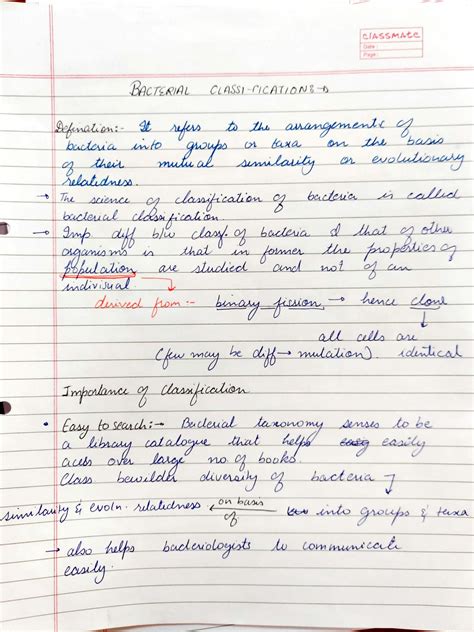 classmate
Date
Page
BACTERIAL CLASSIFICATIONS →
Defination:- It refers to the arrangement of
bacteria into groups or taxa on the basis
of their mutual similarity or evolutionary
relatedness.
→ The science of classification of bacteria is called
bacterial classification
→ Imp diff b/w classf. of bacteria & that of other
organisms is that in former the properties of
population are studied and not of an
indivisual
derived from:- binary fission → hence clone
all cells are
(few may be diff → mutation). identical
Importance of classification
• Easy to search:→ Bacterial taxonomy senses to be
a library catalogue that helps easily
acess over large no. of books.
Class bewilder diversity of bacteria
similarity & evoln. relatedness ← on basis of into groups & taxa
→ also helps bacteriologists to communicate
easily.